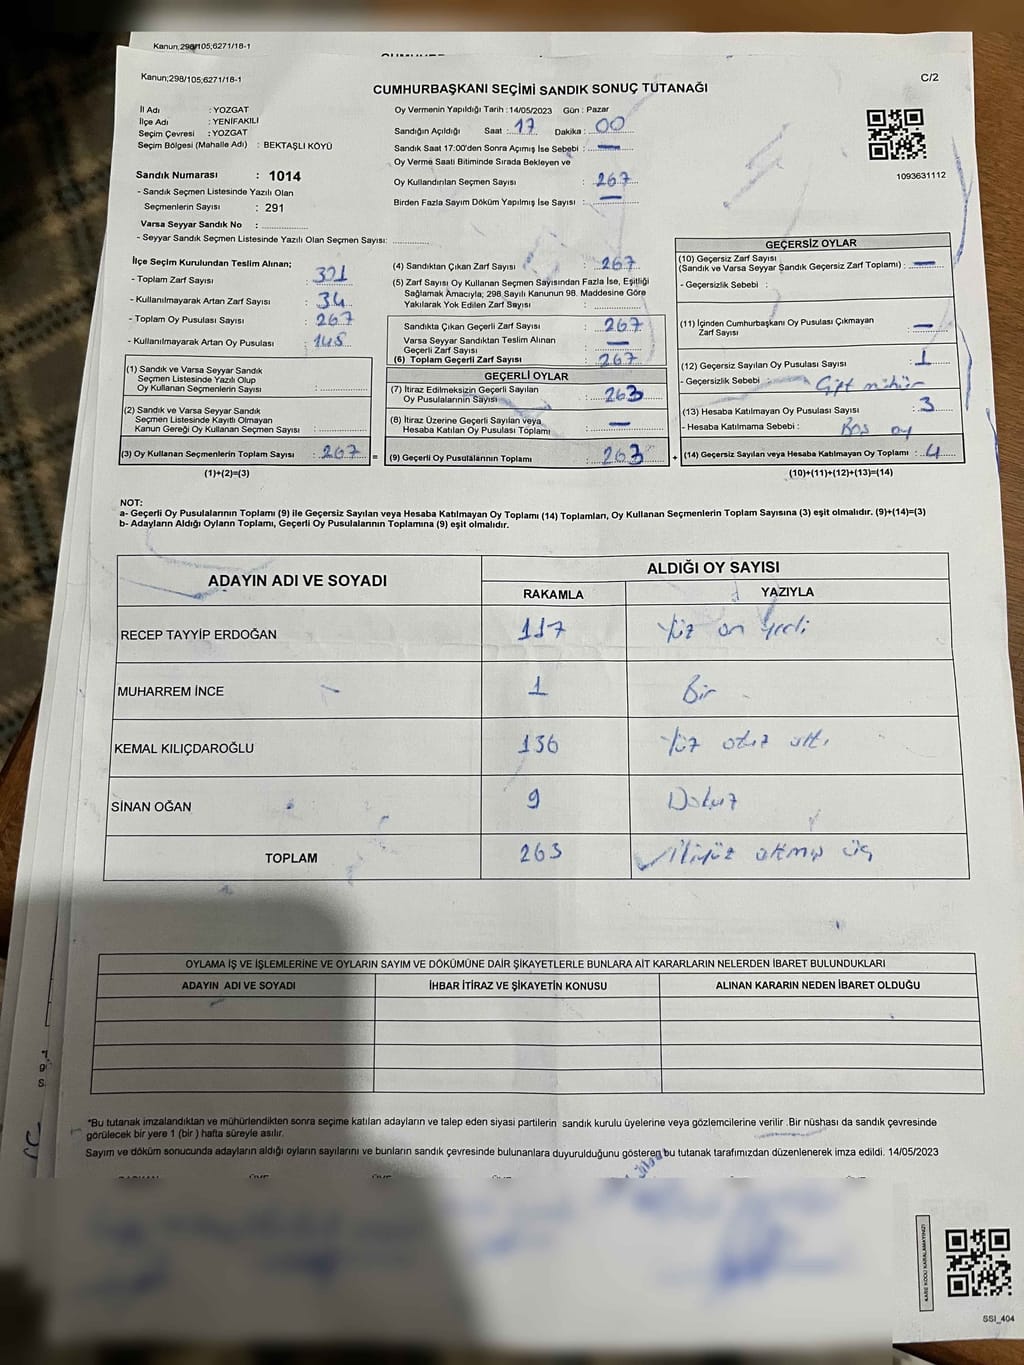 Kanun;298/105;6271/18-1
Kanun;298/105;6271/18-1
C/2
CUMHURBAŞKANI SEÇİMİ SANDIK SONUÇ TUTANAĞI
İl Adı : YOZGAT
İlçe Adı : YENİFAKILI
Seçim Çevresi : YOZGAT
Seçim Bölgesi (Mahalle Adı) : BEKTAŞLI KÖYÜ
Sandık Numarası : 1014
- Sandık Seçmen Listesinde Yazılı Olan
Seçmenlerin Sayısı : 291
Varsa Seyyar Sandık No :
- Seyyar Sandık Seçmen Listesinde Yazılı Olan Seçmen Sayısı:
Oy Vermenin Yapıldığı Tarih : 14/05/2023 Gün : Pazar
Sandığın Açıldığı Saat : 17 Dakika : 00
Sandık Saat 17:00'den Sonra Açımış İse Sebebi : —
Oy Verme Saati Bitiminde Sırada Bekleyen ve
Oy Kullandırılan Seçmen Sayısı : 267
Birden Fazla Sayım Döküm Yapılmış İse Sayısı : —
1093631112
İlçe Seçim Kurulundan Teslim Alınan;
- Toplam Zarf Sayısı : 301
- Kullanılmayarak Artan Zarf Sayısı : 34
- Toplam Oy Pusulası Sayısı : 267
- Kullanılmayarak Artan Oy Pusulası : 145
(1) Sandık ve Varsa Seyyar Sandık
Seçmen Listesinde Yazılı Olup
Oy Kullanan Seçmenlerin Sayısı :
(2) Sandık ve Varsa Seyyar Sandık
Seçmen Listesinde Kayıtlı Olmayan
Kanun Gereği Oy Kullanan Seçmen Sayısı :
(3) Oy Kullanan Seçmenlerin Toplam Sayısı : 267 =
(1)+(2)=(3)
(4) Sandıktan Çıkan Zarf Sayısı : 267
(5) Zarf Sayısı Oy Kullanan Seçmen Sayısından Fazla İse, Eşitliği
Sağlamak Amacıyla; 298 Sayılı Kanunun 98. Maddesine Göre
Yakılarak Yok Edilen Zarf Sayısı :
Sandıkta Çıkan Geçerli Zarf Sayısı : 267
Varsa Seyyar Sandıktan Teslim Alınan
Geçerli Zarf Sayısı : —
(6) Toplam Geçerli Zarf Sayısı : 267
GEÇERLİ OYLAR
(7) İtiraz Edilmeksizin Geçerli Sayılan
Oy Pusulalarının Sayısı : 263
(8) İtiraz Üzerine Geçerli Sayılan veya
Hesaba Katılan Oy Pusulası Toplamı : —
(9) Geçerli Oy Pusulalarının Toplamı : 263 +
GEÇERSİZ OYLAR
(10) Geçersiz Zarf Sayısı
(Sandık ve Varsa Seyyar Sandık Geçersiz Zarf Toplamı) : —
- Geçersizlik Sebebi :
(11) İçinden Cumhurbaşkanı Oy Pusulası Çıkmayan
Zarf Sayısı : —
(12) Geçersiz Sayılan Oy Pusulası Sayısı : 1
- Geçersizlik Sebebi : Çift mühür
(13) Hesaba Katılmayan Oy Pusulası Sayısı : 3
- Hesaba Katılmama Sebebi : Boş oy
(14) Geçersiz Sayılan veya Hesaba Katılmayan Oy Toplamı : 4
(10)+(11)+(12)+(13)=(14)
NOT:
a- Geçerli Oy Pusulalarının Toplamı (9) ile Geçersiz Sayılan veya Hesaba Katılmayan Oy Toplamı (14) Toplamları, Oy Kullanan Seçmenlerin Toplam Sayısına (3) eşit olmalıdır. (9)+(14)=(3)
b- Adayların Aldığı Oyların Toplamı, Geçerli Oy Pusulalarının Toplamına (9) eşit olmalıdır.
ADAYIN ADI VE SOYADI ALDIĞI OY SAYISI
RAKAMLA YAZIYLA
RECEP TAYYİP ERDOĞAN 117 Yüz on yedi
MUHARREM İNCE 1 Bir
KEMAL KILIÇDAROĞLU 136 Yüz otuz altı
SİNAN OĞAN 9 Dokuz
TOPLAM 263 ikiyüz altmış üç
OYLAMA İŞ VE İŞLEMLERİNE VE OYLARIN SAYIM VE DÖKÜMÜNE DAİR ŞİKAYETLERLE BUNLARA AİT KARARLARIN NELERDEN İBARET BULUNDUKLARI
ADAYIN ADI VE SOYADI İHBAR İTİRAZ VE ŞİKAYETİN KONUSU ALINAN KARARIN NEDEN İBARET OLDUĞU
*Bu tutanak imzalandıktan ve mühürlendikten sonra seçime katılan adayların ve talep eden siyasi partilerin sandık kurulu üyelerine veya gözlemcilerine verilir .Bir nüshası da sandık çevresinde
görülecek bir yere 1 (bir ) hafta süreyle asılır.
Sayım ve döküm sonucunda adayların aldığı oyların sayılarını ve bunların sandık çevresinde bulunanlara duyurulduğunu gösteren bu tutanak tarafımızdan düzenlenerek imza edildi. 14/05/2023
KARE KODU KARALAMAYINIZ!
SSI_404